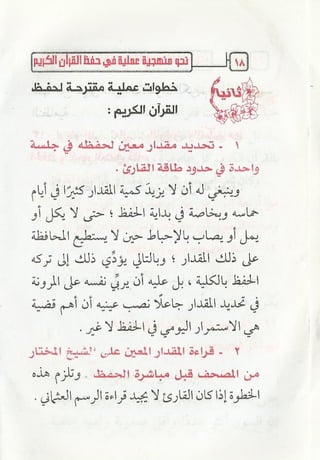 ١٨
نحو منهجية عملية في حفظ القرآن الكريم
ثانية
خطوات عملية مقترحة لحفظ
القرآن الكريم :
١ - تحديد مقدار معين لحفظه في جلسة
واحدة في حدود طاقة القارئ .
وينبغي له أن لا يزيد كمية المقدار كثيرًا في أيام
حماسه وبخاصة في بداية الحفظ ؛ حتى لا يكل أو
يمل أو يصاب بالإحباط حين لا يستطيع المحافظة
على ذلك المقدار ؛ وبالتالي يؤدِّي ذلك إلى تركه
الحفظ بالكلية ، بل عليه أن يربِّي نفسه على المرونة
في تحديد المقدار جاعلًا نصب عينيه أن أهم قضية
هي الاستمرار اليومي في الحفظ لا غير .
٢ - قراءة المقدار المعين على الشيخ المختار
من المصحف قبل مباشرة الحفظ . وتلزم هذه
الخطوة إذا كان القارئ لا يجيد قراءة الرسم العثماني .